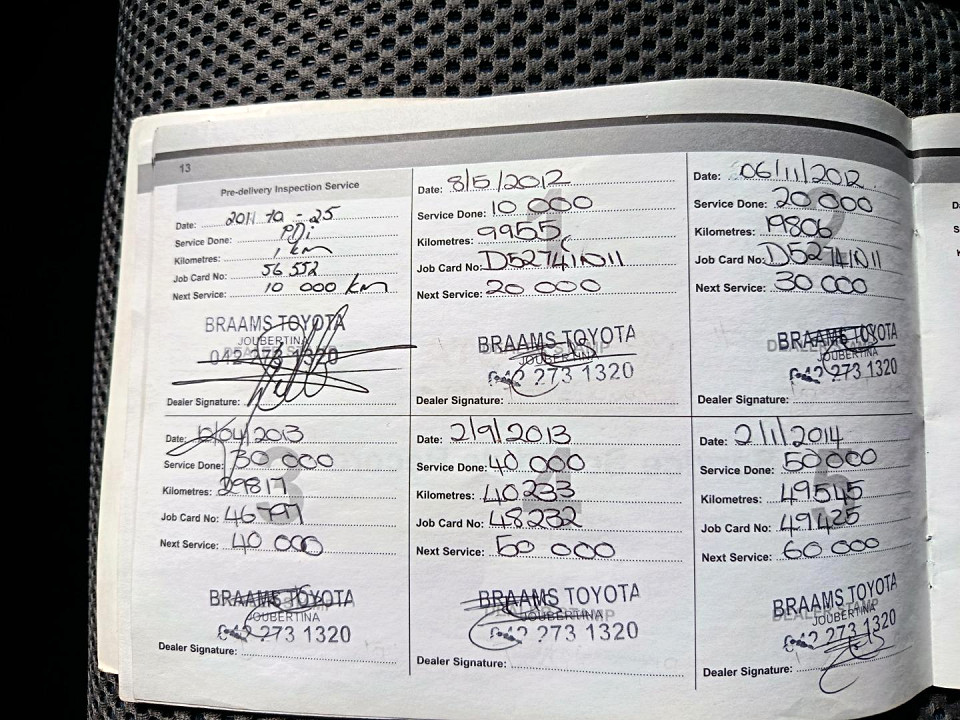 13
Pre-delivery Inspection Service
Date: 2011-10-25
Service Done: PDi
Kilometres: 1 km
Job Card No: 56 552
Next Service: 10 000 km
BRAAMS TOYOTA
JOUBERTINA
042 273 1320
Dealer Signature:
Date: 8/5/2012
Service Done: 10 000
Kilometres: 9955
Job Card No: D52741D11
Next Service: 20 000
BRAAMS TOYOTA
JOUBERTINA
042 273 1320
Dealer Signature:
Date: 06/11/2012
Service Done: 20 000
Kilometres: 19806
Job Card No: D52741D11
Next Service: 30 000
BRAAMS TOYOTA
JOUBERTINA
042 273 1320
Dealer Signature:
Date: /04/2013
Service Done: 30 000
Kilometres: 29817
Job Card No:
Next Service: 40 000
BRAAMS TOYOTA
JOUBERTINA
042 273 1320
Dealer Signature:
Date: 2/9/2013
Service Done: 40 000
Kilometres: 40233
Job Card No: 48232
Next Service: 50 000
BRAAMS TOYOTA
JOUBERTINA
042 273 1320
Dealer Signature:
Date: 2/1/2014
Service Done: 50 000
Kilometres: 49545
Job Card No: 49425
Next Service: 60 000
BRAAMS TOYOTA
JOUBERTINA
042 273 1320
Dealer Signature: